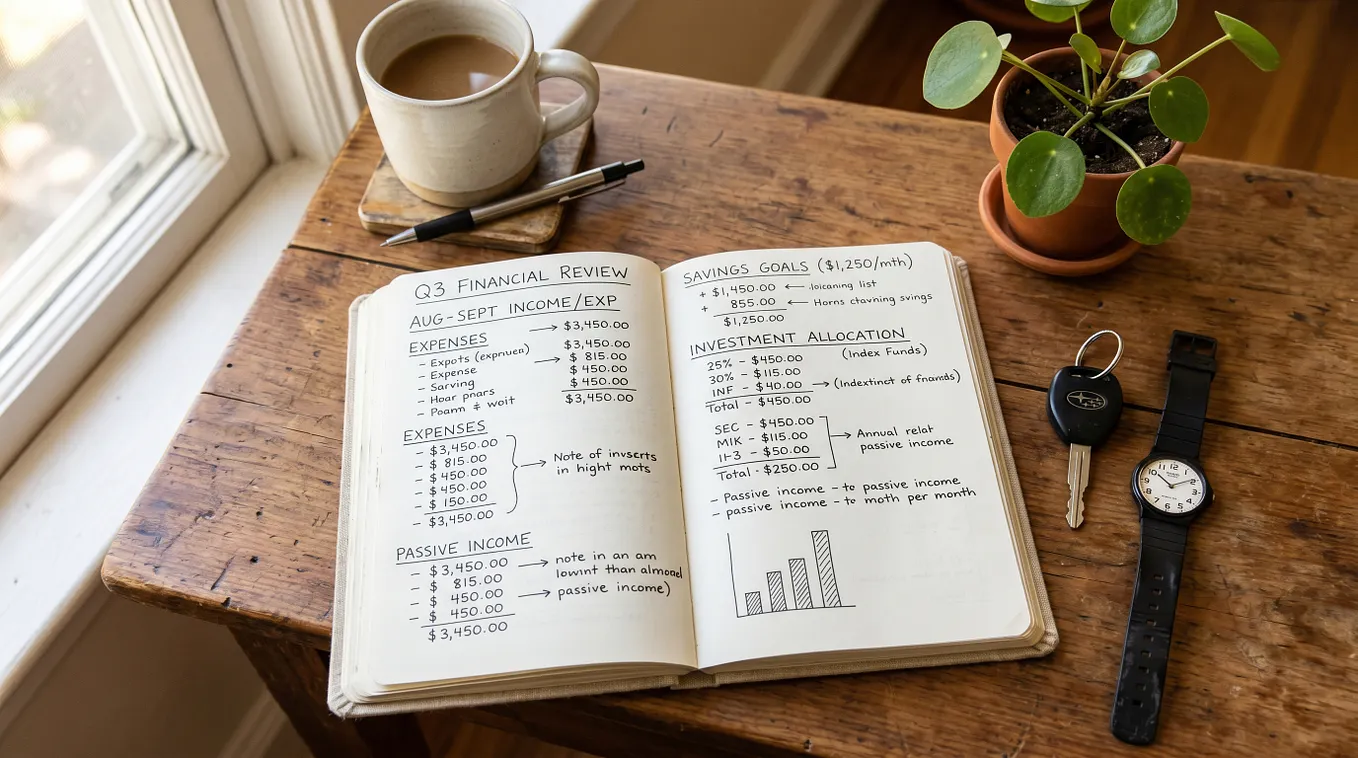 Q3 FINANCIAL REVIEW
AUG-SEPT INCOME/EXP
→ $3,450.00
EXPENSES
$3,450.00
- Expots (expruen) → $ 815.00
- Expense $450.00
- Sarving $ 450.00
- Hoar pnars $3,450.00
- Poam & woit
EXPENSES
- $3,450.00
- $ 815.00
- $450.00
- $450.00
- $ 150.00
- $3,450.00
→ Note of invserts
in hight mots
PASSIVE INCOME
- $3,450.00 → note in an am
- $ 815.00 lowint than almoad
- $ 450.00 → passive income)
- $ 450.00
$3,450.00
SAVINGS GOALS ($1,250/mth)
+ $1,450.00 ← list
+ 855.00 ← Horns ctavning svings
$1,250.00
INVESTMENT ALLOCATION
25% - $450.00 (Index Funds)
30% - $115.00
INF - $40.00 → (Indextinct of fnamds)
Total - $450.00
SEC - $450.00
MIK - $115.00
11-3 - $50.00
Total · $250.00
→ Annual relat
passive income
- Passive income - to passive income
- passive income - to moth per month
12